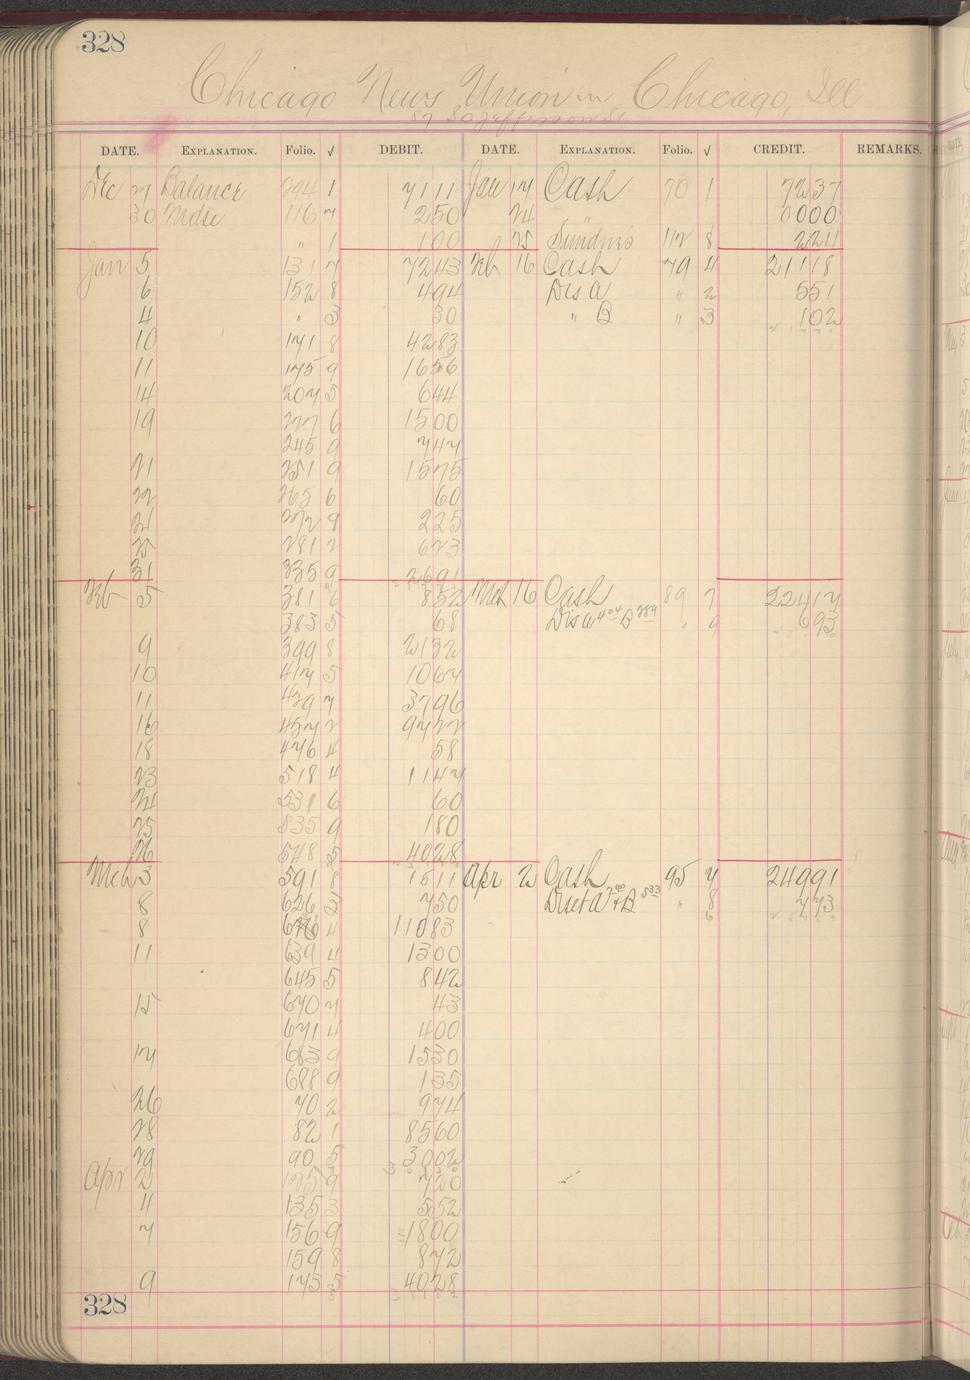 328
Chicago News Union in Chicago, Ill
87 So Jefferson St
DATE. EXPLANATION. Folio. √ DEBIT. DATE. EXPLANATION. Folio. √ CREDIT. REMARKS.
Dec 27 Balance 294 1 7111 Jan 17 Cash 70 1 7237
30 Mdse 116 7 250 24 "
" 1 100 25 Sundries 112 8 224
Jan 5 131 7 7243 Feb 16 Cash 79 4 21118
6 152 8 494 Dis A " 2 551
4 " 3 30 " B " 3 102
10 171 8 4283
11 175 9 1656
14 207 5 644
19 227 6 1500
245 9 747
21 251 9 1575
22 265 6 60
24 272 9 225
25 281 2 623
31 335 9 2691
Feb 5 381 6 852 Mch 16 Cash 89 7 22417
383 5 68 Dis A 404 B 289 " 9 693
9 399 8 2132
10 417 5 1067
11 429 7 3796
16 457 2 9722
18 476 4 58
23 518 4 1147
24 531 6 60
25 535 9 180
26 548 5 4028
Mch 3 591 8 1511 Apr 2 Cash 95 7 24991
8 626 2 750 Disct A 240 + B 533 " 8 773
8 4 11083
11 639 4 1300
645 5 842
15 670 7 43
671 4 400
17 683 9 1530
688 9 135
26 70 2 974
28 82 1 8560
29 90 5 3002
Apr 2 125 9 720
4 135 3 552
7 156 9 1800
159 8 872
9 175 5 4028
328